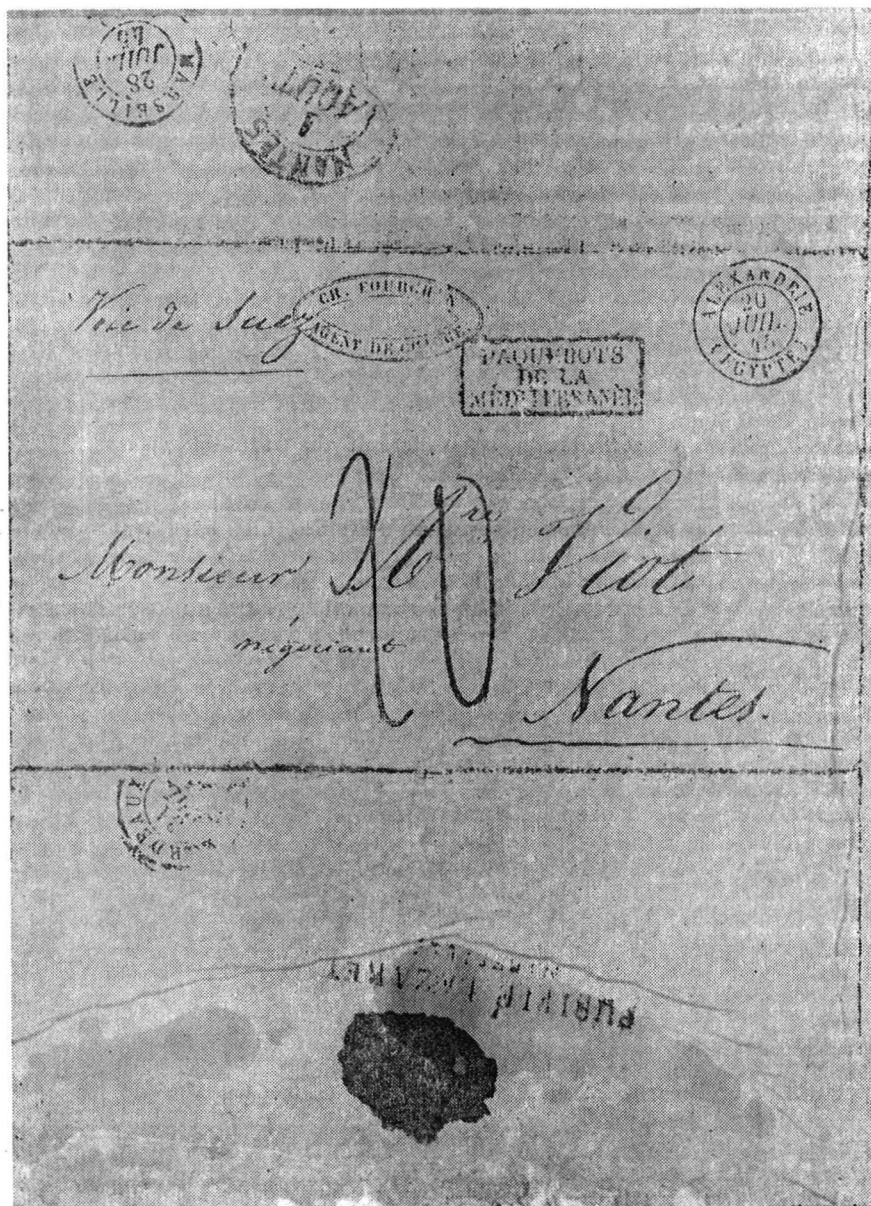 MARSEILLE
28
JUIL.
NANTES
1
AOUT
Voie de Suez
CH. FOURCH
AGENT DE
PAQUEBOTS
DE LA
MÉDITERRANÉE
ALEXANDRIE
20
JUIL.
(EGYPTE)
20
Monsieur Viot
négociant
Nantes.
PURIFIÉ LAZARET